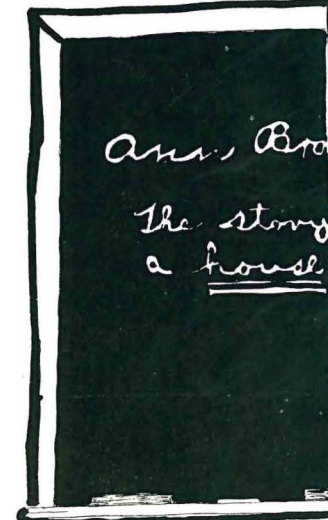 Ann, Bro
The story
a house